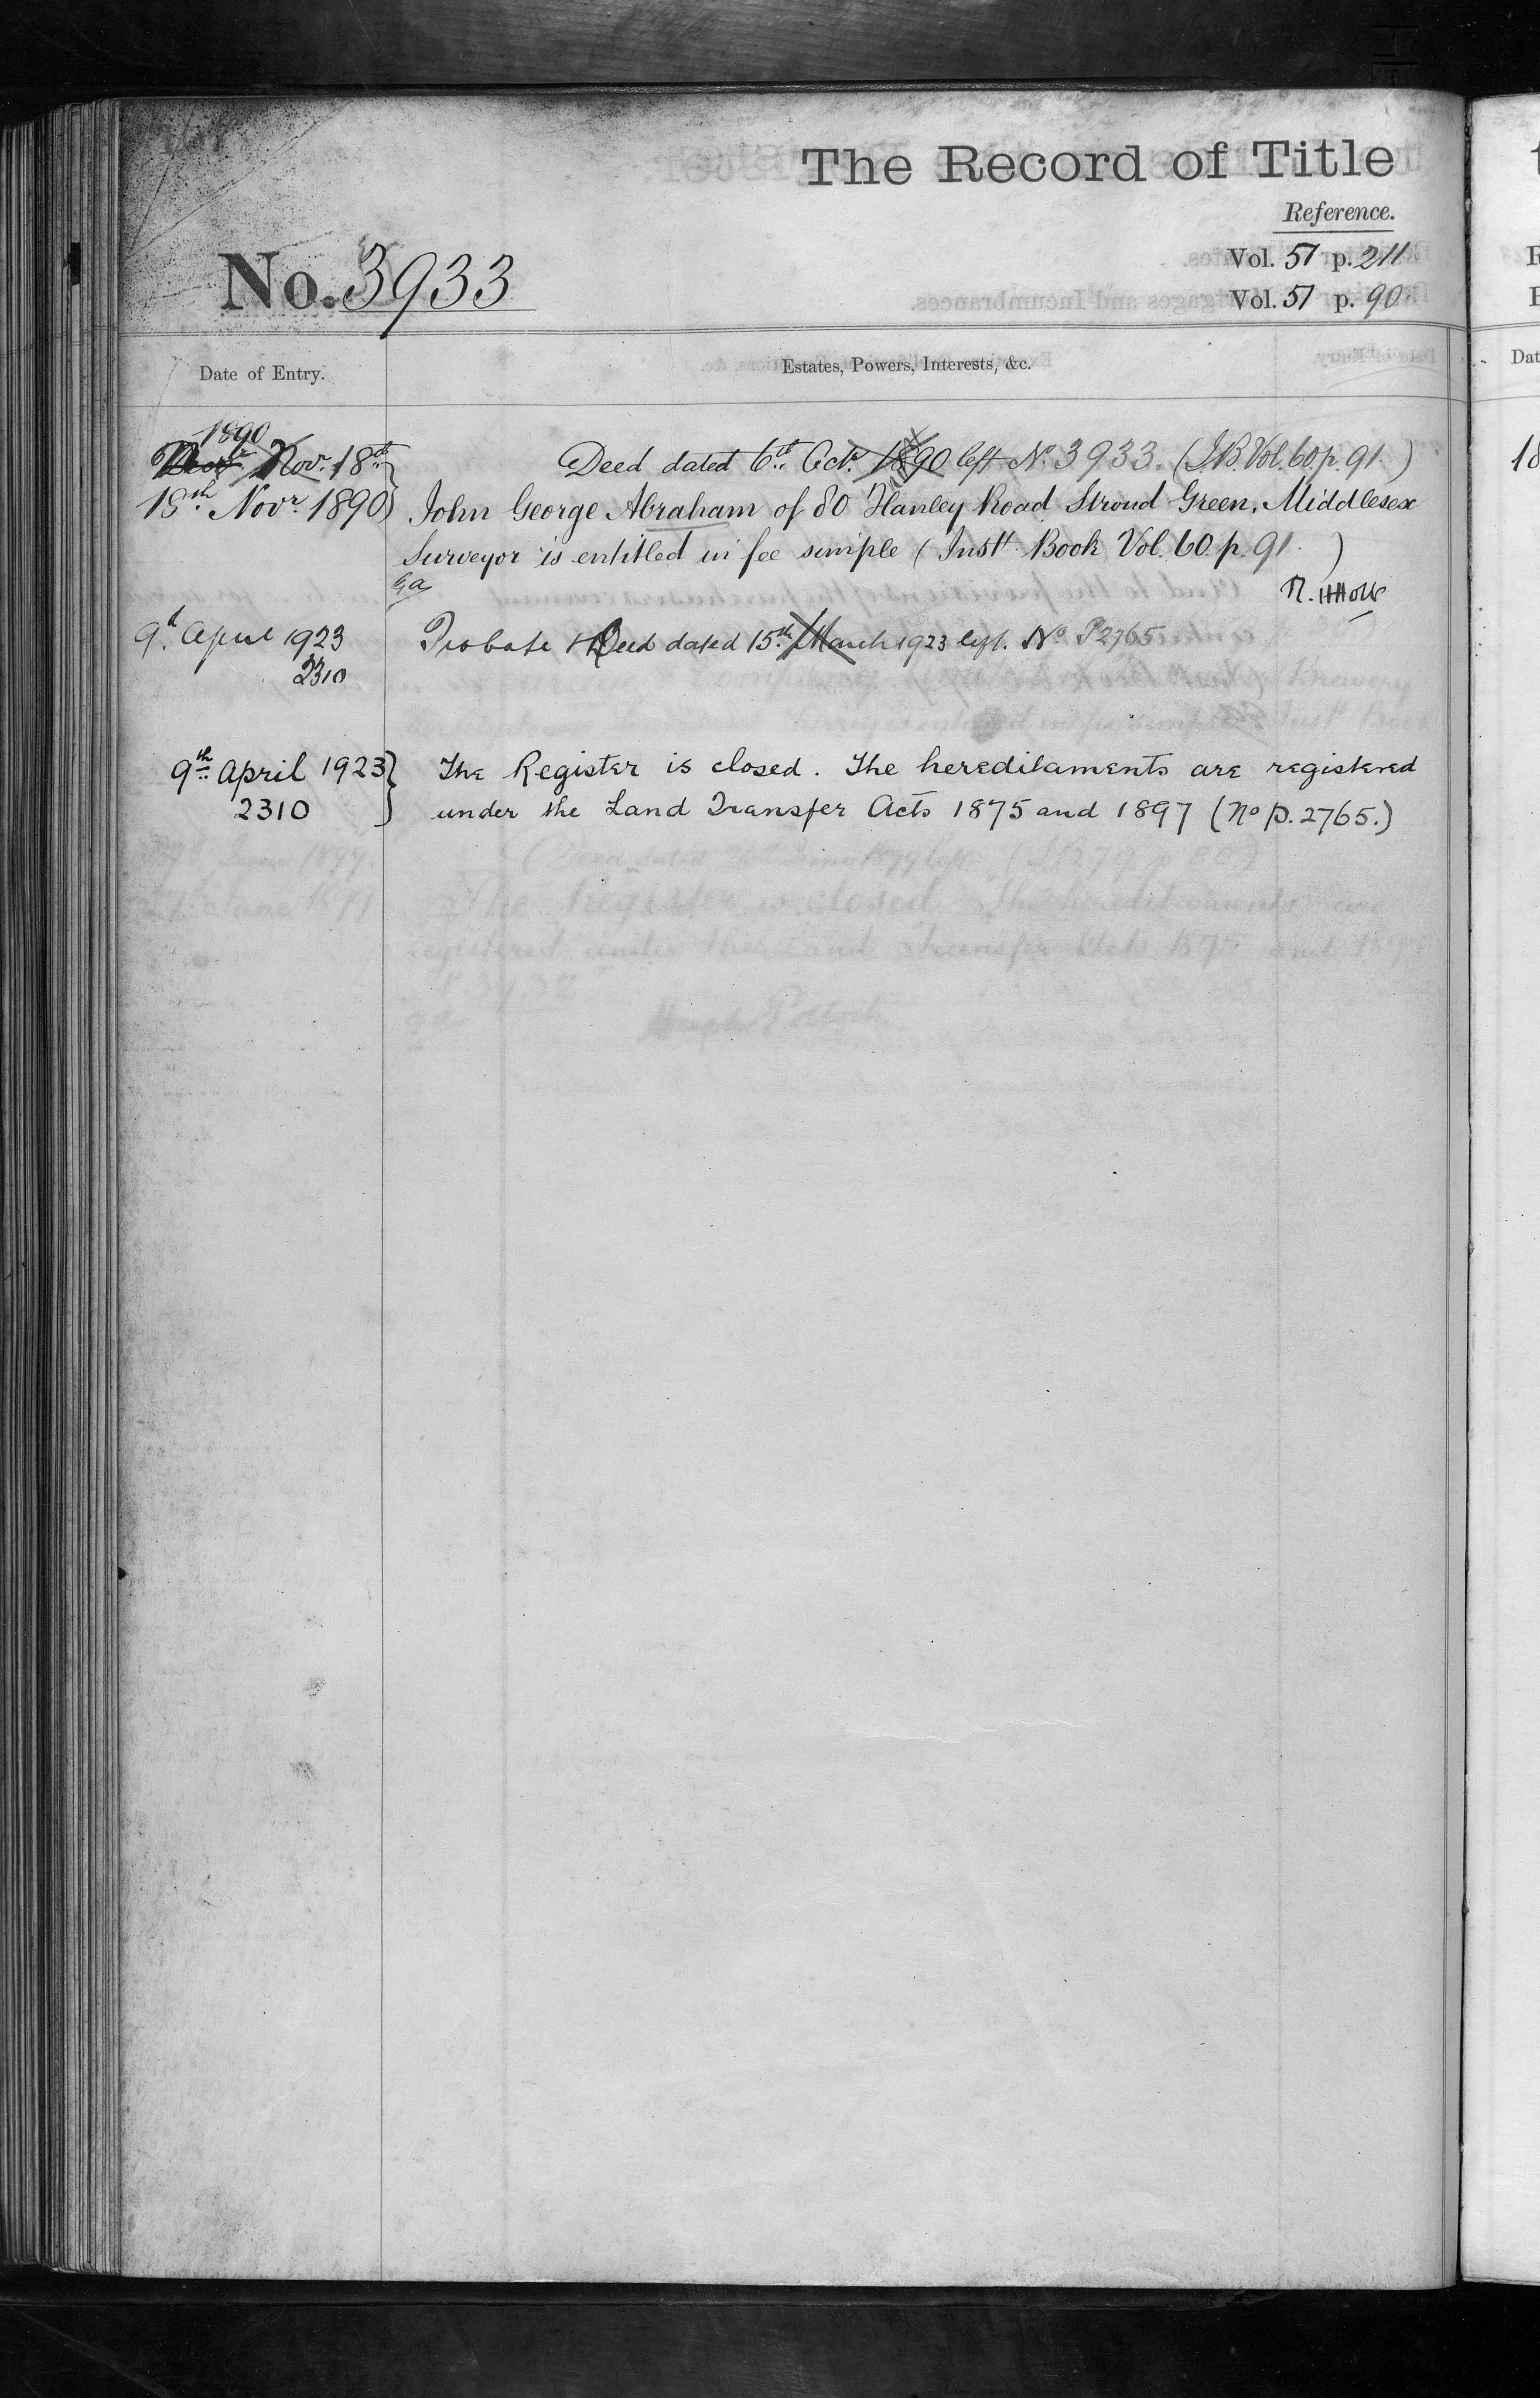 The Record of Title
Reference.
No. 3933
Vol. 51 p. 211
Vol. 51 p. 90
Date of Entry.
Estates, Powers, Interests, &c.
1890
Nov. 18th
Deed dated 6th Octr. 1890 left No. 3933. (I.B. Vol. 60. p. 91.)
18th Novr. 1890
John George Abraham of 80 Hanley Road Stroud Green, Middlesex
Surveyor is entitled in fee simple (Inst. Book Vol. 60. p. 91.)
9th April 1923
Probate & Deed dated 15th March 1923 left. No. P2765
2310
9th April 1923
The Register is closed. The hereditaments are registered
2310
under the Land Transfer Acts 1875 and 1897 (No P. 2765.)